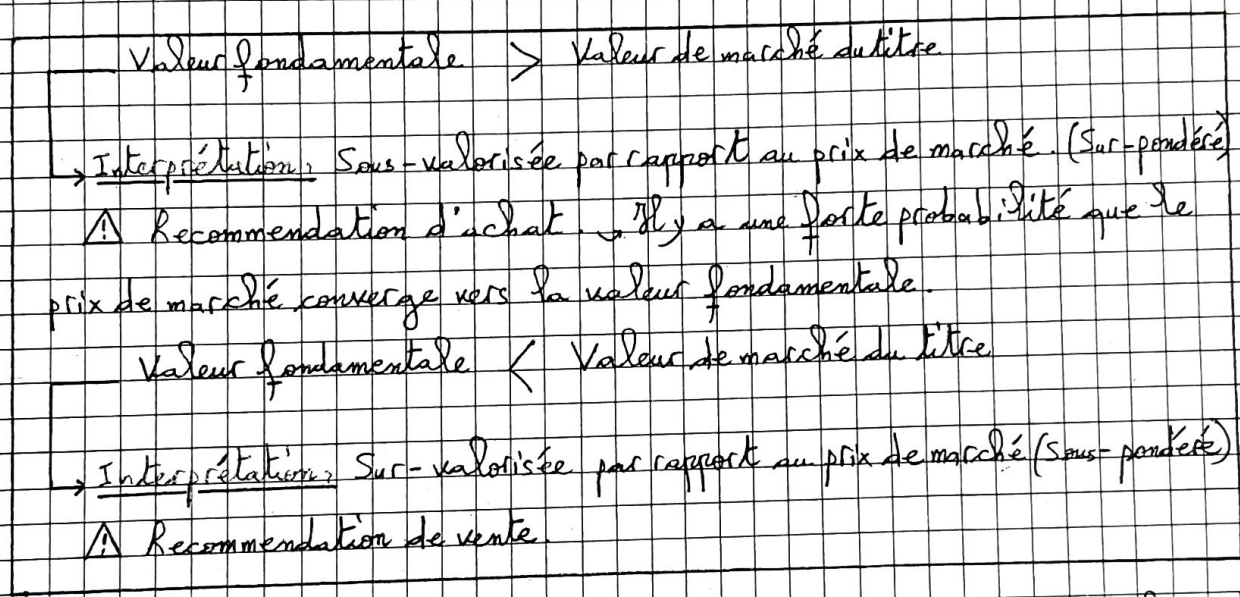 Valeur fondamentale > Valeur de marché du titre
Interprétation: Sous-valorisée par rapport au prix de marché. (Sur-pondéré)
⚠ Recommendation d'achat. ↳ Il y a une forte probabilité que le
prix de marché converge vers la valeur fondamentale.
Valeur fondamentale < Valeur de marché du titre
Interprétation: Sur-valorisée par rapport au prix de marché (Sous-pondéré)
⚠ Recommendation de vente.